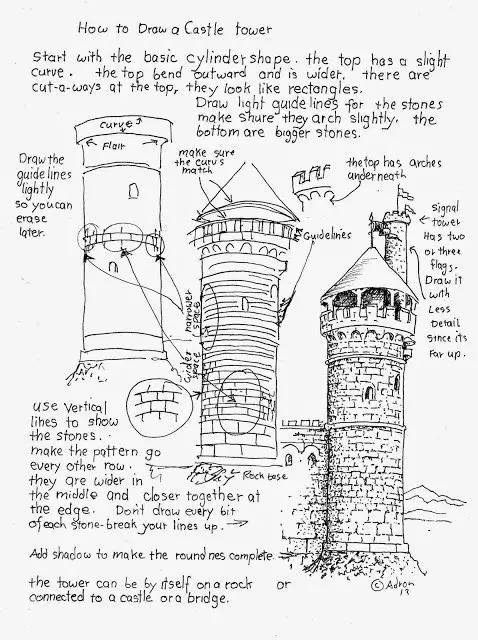 How to Draw a Castle tower
Start with the basic cylinder shape. the top has a slight
curve. the top bend outward and is wider. there are
cut-a-ways at the top, they look like rectangles.
Draw light guide lines for the stones
make shure they arch slightly. the
bottom are bigger stones.
Curve
Flair
make sure
the curvs
match
the top has arches
underneath
Draw the
guide lines
lightly
so you can
erase
later.
Guidelines
Signal
tower
Has two
or three
flags.
Draw it
with
Less
Detail
since its
Far up.
narrower
space
wider
space
use Vertical
lines to show
the stones.
make the pattern go
every other row.
they are wider in
the middle and closer together at
the edge. Don't draw every bit
of each stone-break your lines up.
Rock base
Add shadow to make the roundnes complete.
the tower can be by itself on a rock or
connected to a castle or a bridge.
© Adron
12